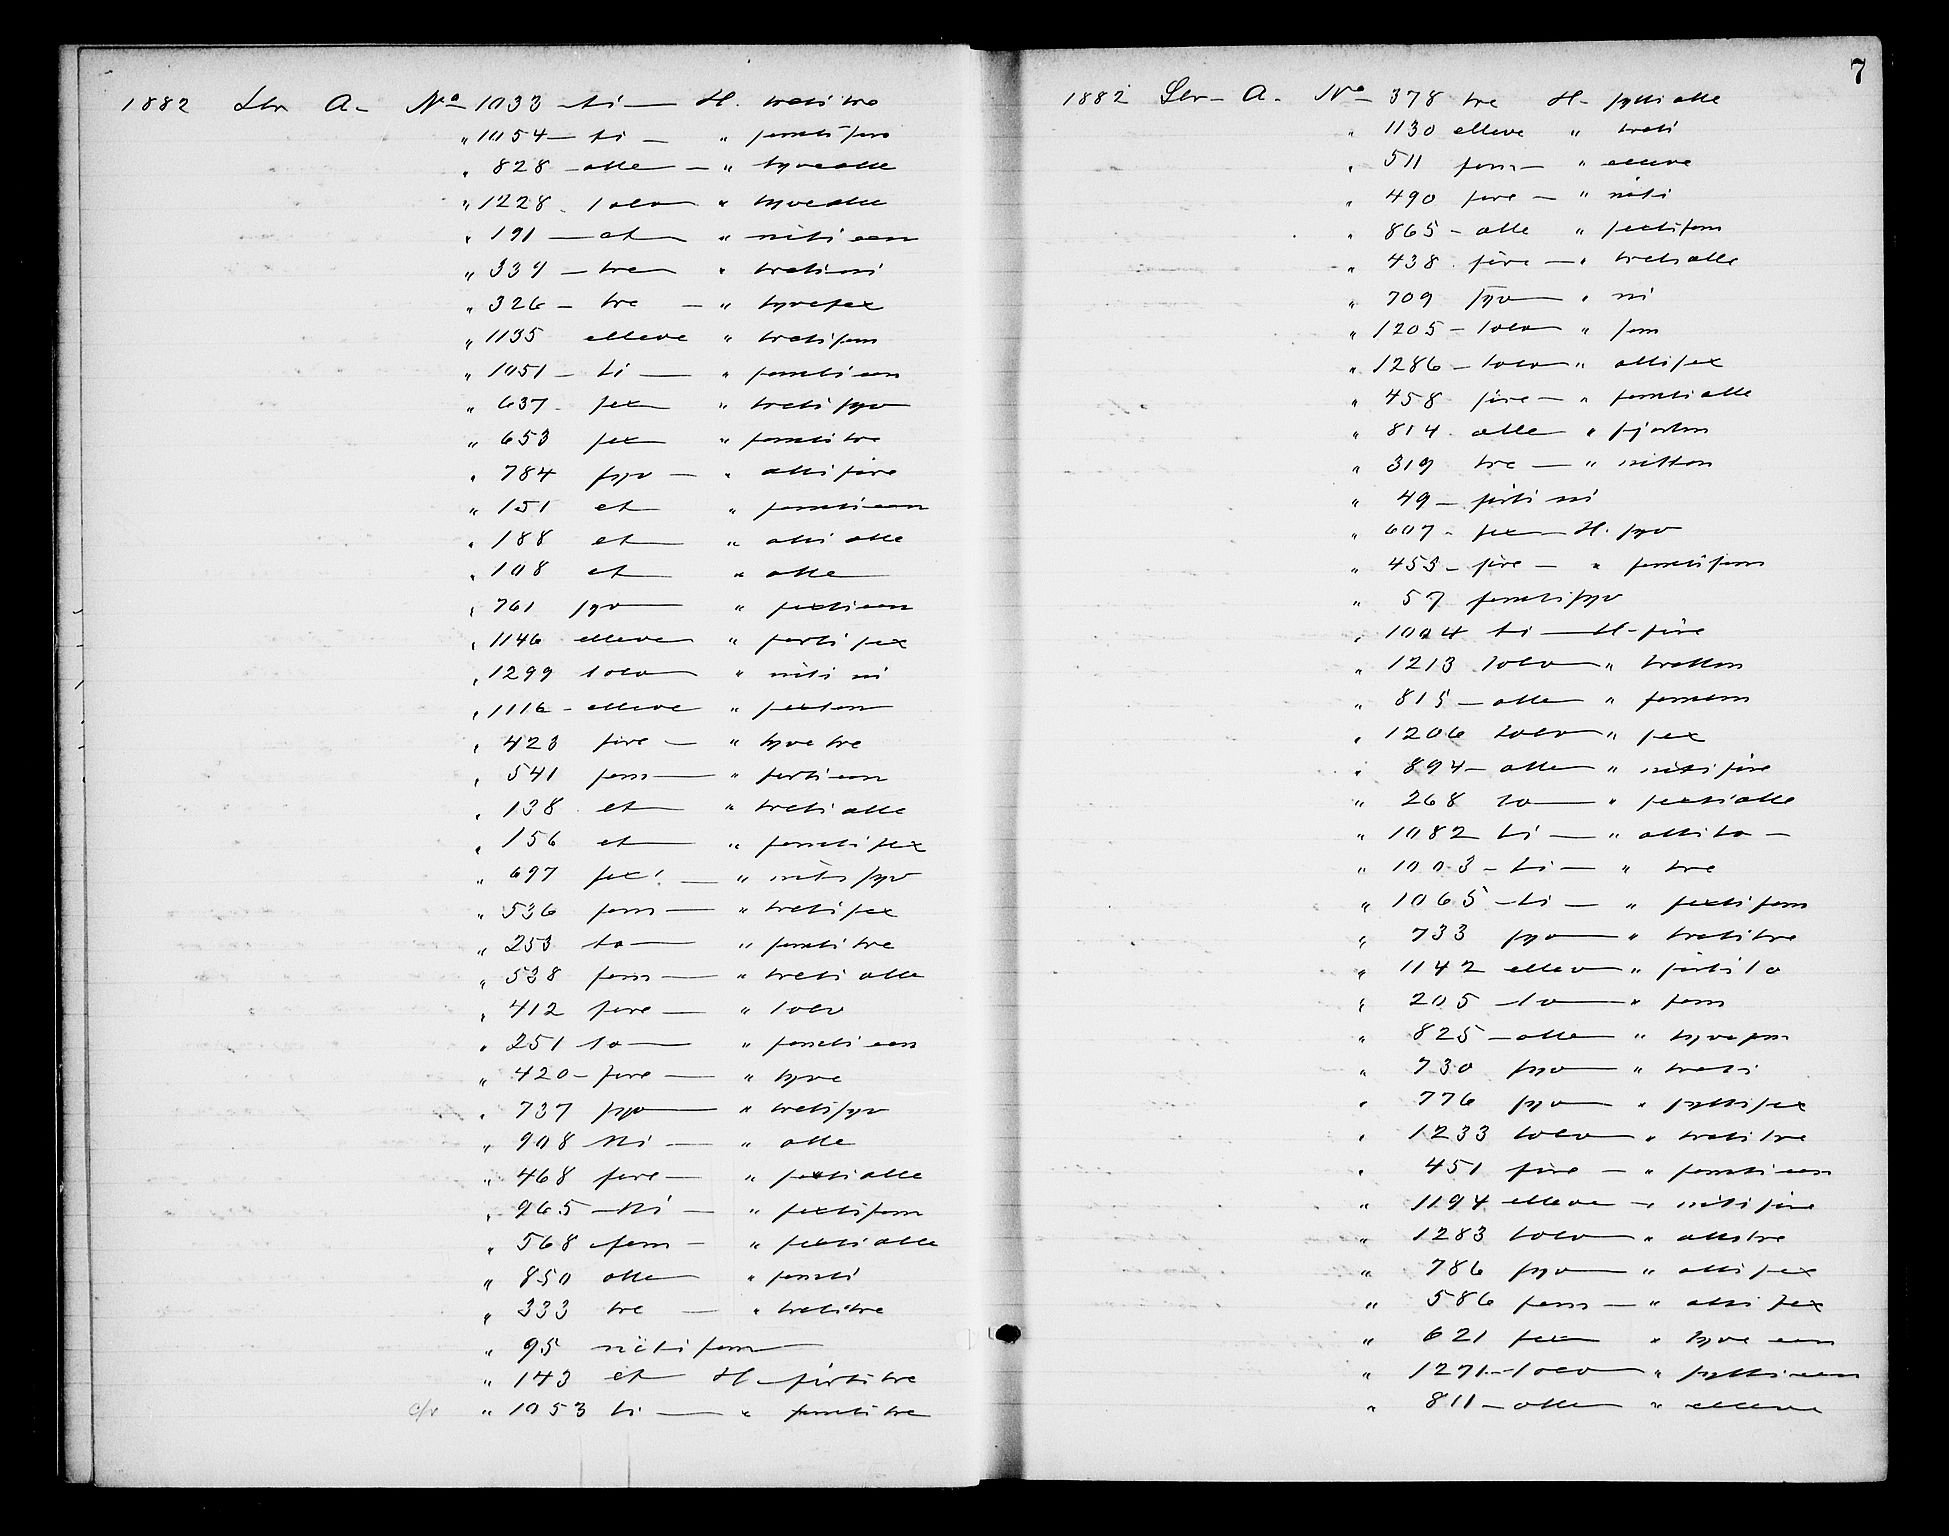 1882 Litr A - No 1033 - ti - H. tretitre
" 1054 - ti - " femtifire
" 828 - otte - " tyveotte
" 1228 - tolv " tyveotte
" 191 - et " nitien
" 339 - tre " tretini
" 326 - tre - " tyvesex
" 1135 elleve " tretifem
" 1051 - ti - " femtien
" 637 - sex " tretisyv
" 653 sex " femtitre
" 784 syv - " ottifire
" 151 et " femtien
" 188 et " ottiotte
" 108 et " otte
" 761 syv " sextien
" 1146 elleve " førtisex
" 1299 tolv " nitini
" 1116 - elleve " sexten
" 423 fire - " tyvetre
" 541 fem - " førtien
" 138 et " tretiotte
" 156 et " femtisex
" 697 sex - " nitisyv
" 536 fem - " tretisex
" 253 to - " femtitre
" 538 fem - " tretiotte
" 412 fire - " tolv
" 251 to - " femtien
" 420 - fire - " tyve
" 737 syv " tretisyv
" 908 Ni - " otte
" 468 fire - " sextiotte
" 965 - Ni - " sextifem
" 568 fem - " sextiotte
" 850 otte " femti
" 333 tre - " tretitre
" 95 nitifem
" 143 et H - førtitre
c/v " 1053 ti - " femtitre
7
1882 Litr - A - No - 378 tre H - syttiotte
" 1130 elleve " treti
" 511 fem - " elleve
" 490 fire - " niti
" 865 - otte " sextifem
" 438 fire - " tretiotte
" 709 syv " ni
" 1205 - tolv " fem
" 1286 - tolv " ottisex
" 458 fire - " femtiotte
" 814 otte " fjorten
" 319 tre - " nitten
" 49 - førtini
" 607 - sex - H. syv
" 453 - fire - " femtifem
" 57 femtisyv
" 1004 ti - H - fire
" 1213 tolv " tretten
" 815 - otte " femten
" 1206 tolv " sex
" 894 - otte " nitifire
" 268 to - " sextiotte
" 1082 ti - " ottito -
" 1003 - ti - " tre
" 1065 - ti - " sextifem
" 733 syv " tretitre
" 1142 elleve " førtito
" 205 - to " fem
" 825 - otte " tyvefem
" 730 syv " treti
" 776 syv " syttisex
" 1233 tolv " tretitre
" 451 fire - " femtien
" 1194 elleve - " nitifire
" 1283 tolv " ottitre
" 786 syv " ottisex
" 586 fem - " ottisex
" 621 sex " tyveen
" 1271 - tolv " syttien
" 811 - otte " elleve